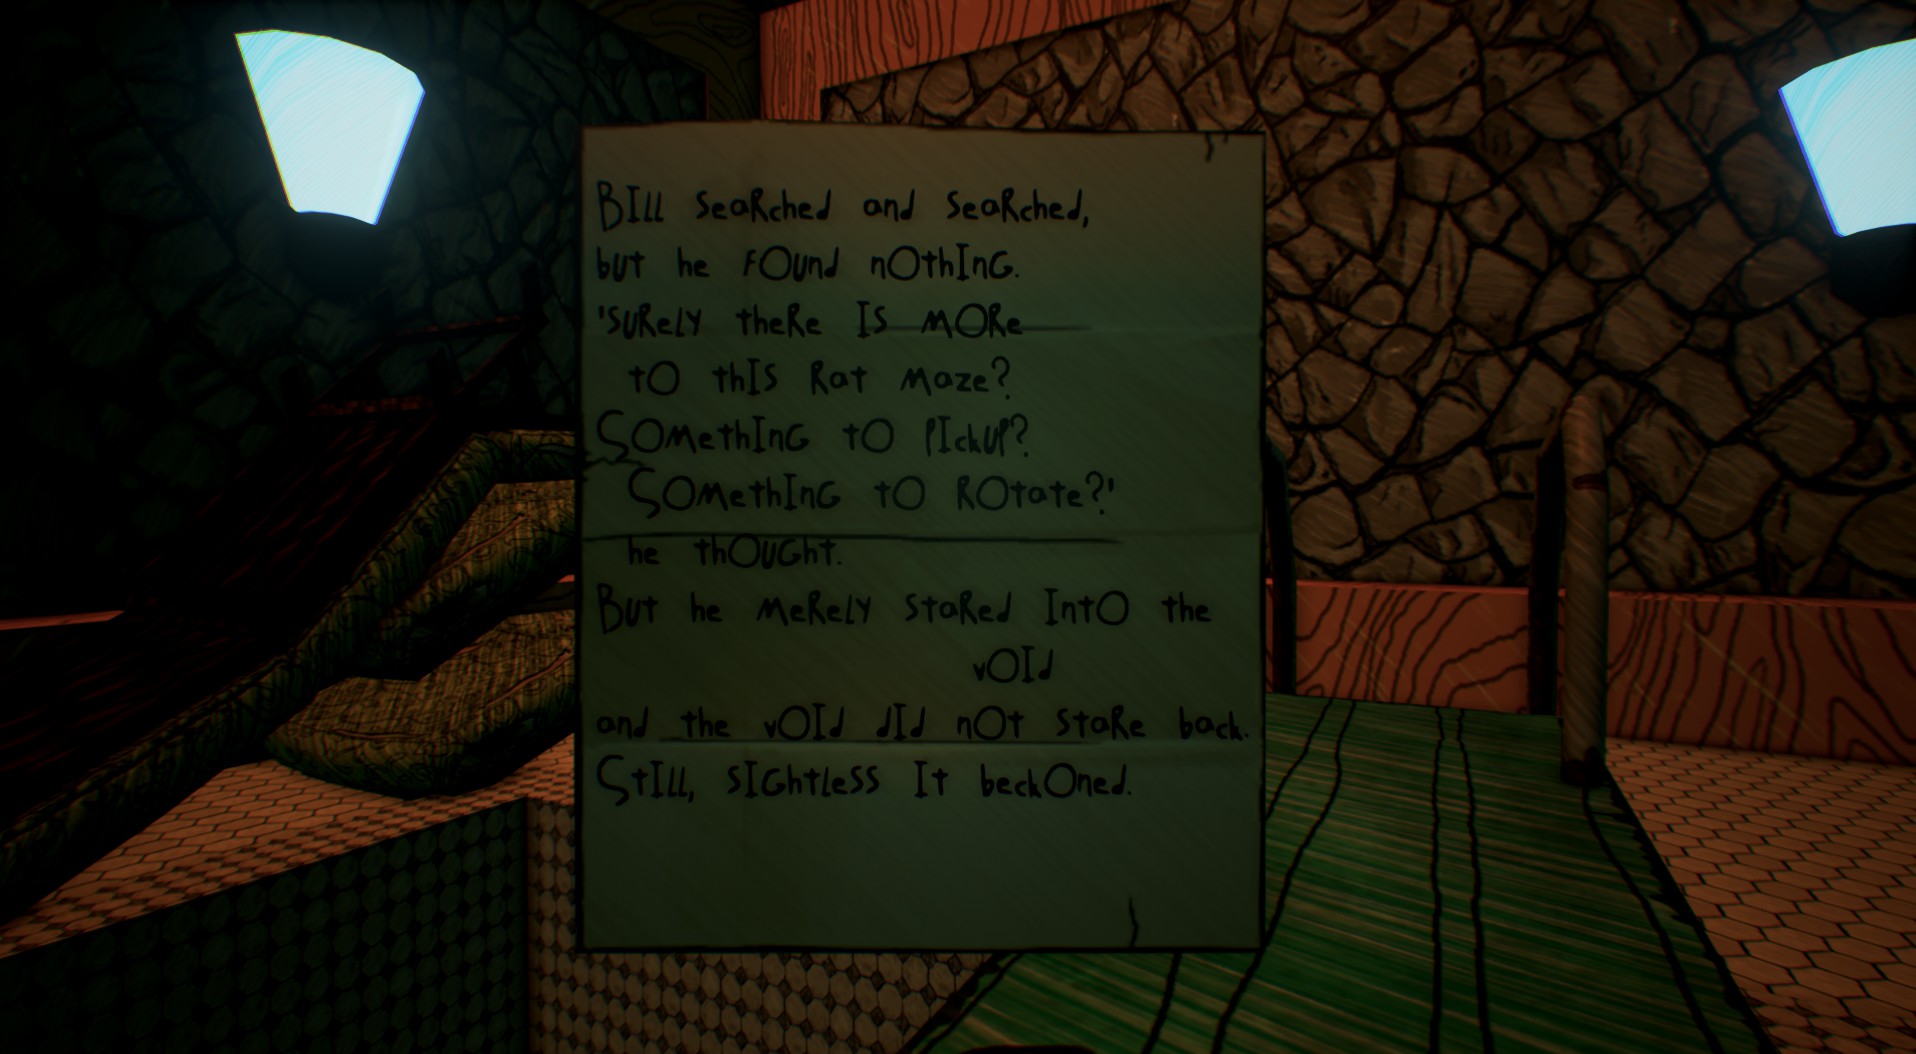 BILL SeaRched and SeaRched,
bUt he FOUnd nOthInG.
'SURelY theRe IS MORe
tO thIS Rat Maze?
SOMethInG tO PIckUP?
SOMethInG tO ROtate?'
he thOUGht.
BUt he MeRelY StaRed IntO the
vOId
and the vOId dId nOt StaRe back.
StIll, SIGhtleSS It beckOned.